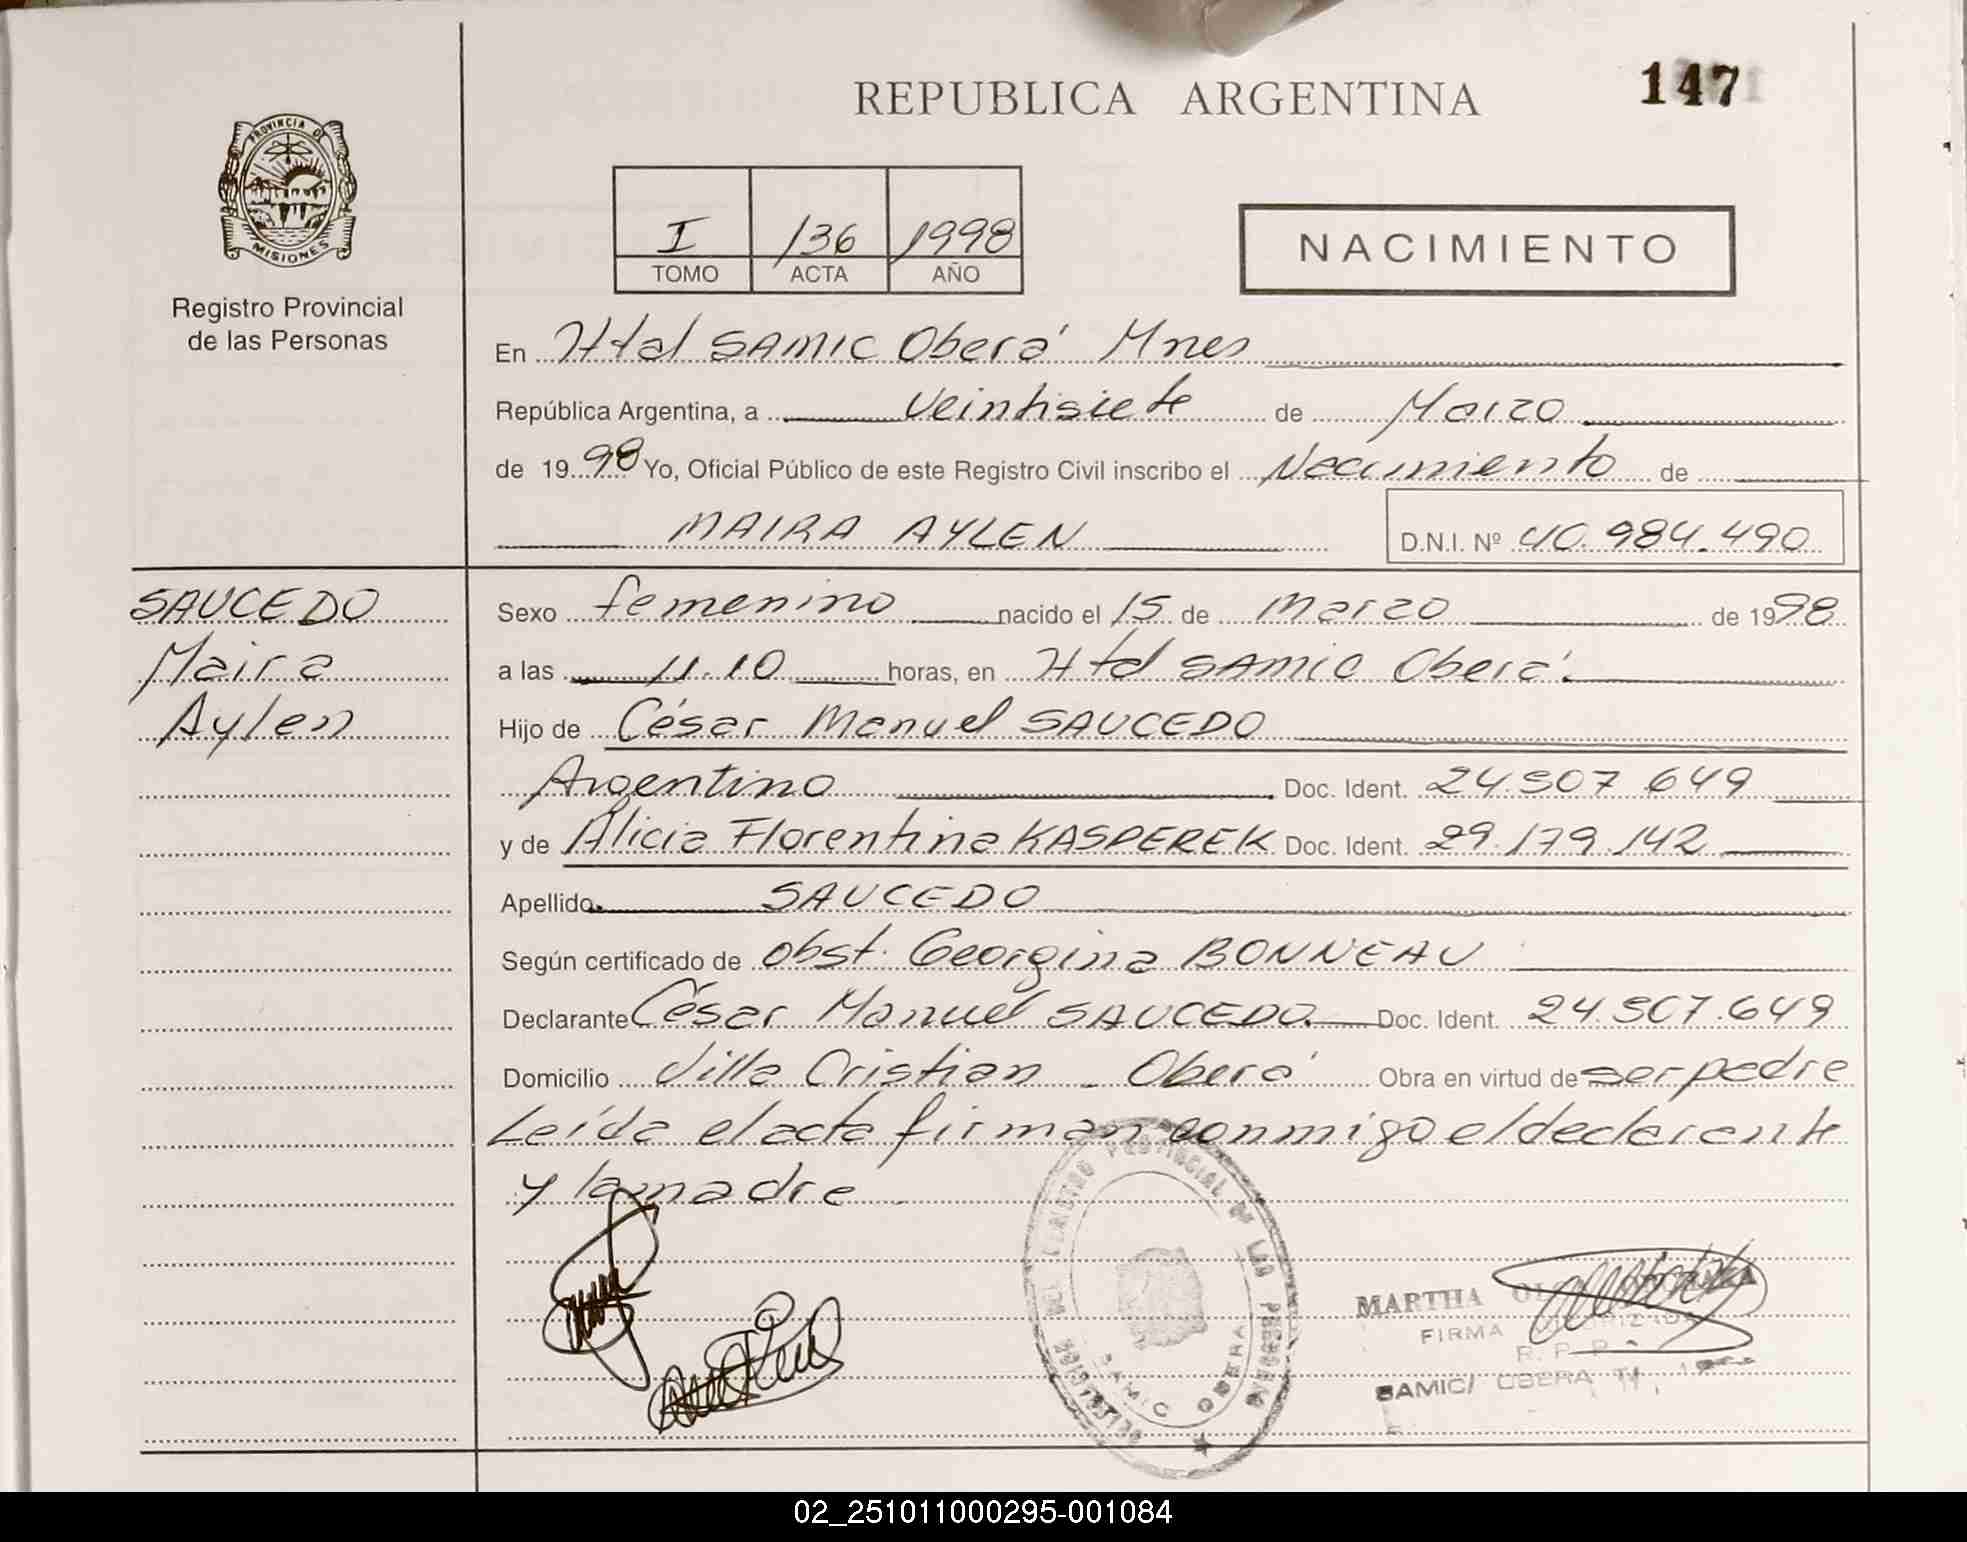 REPUBLICA ARGENTINA
147
PROVINCIA DE
MISIONES
Registro Provincial
de las Personas
I 136 1998
TOMO ACTA AÑO
NACIMIENTO
En Htal SAMIC Oberá Mnes
República Argentina, a Veintisiete de Marzo
de 1998 Yo, Oficial Público de este Registro Civil inscribo el Nacimiento de
MAIRA AYLEN D.N.I. Nº 40.984.490
SAUCEDO
Maira
Aylen
Sexo femenino nacido el 15 de Marzo de 1998
a las 11.10 horas, en Htal SAMIC Oberá.
Hijo de César Manuel SAUCEDO
Argentino Doc. Ident. 24.507.649
y de Alicia Florentina KASPEREK Doc. Ident. 29.179.142
Apellido SAUCEDO
Según certificado de obst. Georgina BONNEAU
Declarante César Manuel SAUCEDO Doc. Ident. 24.507.649
Domicilio Villa Cristian - Oberá Obra en virtud de ser padre
Leída el acta firman conmigo el declarante
y la madre
PROVINCIAL DE LAS PERSONAS
SAMIC OBERA
MARTHA
FIRMA
R. P. P.
SAMIC/ OBERA
02_251011000295-001084